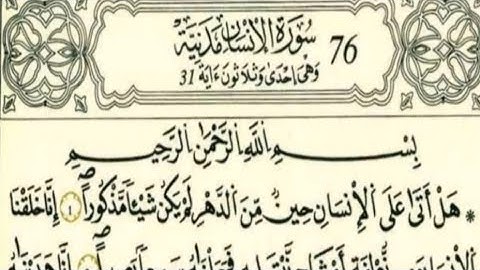 76 سُورَةُ اُلْإِنسَانِ مَدَنِيَّة
وَهْىَ اِحْدَىٰ وَثَلَاثُونَ ءَايَة 31
بِسْمِ اِللَّهِ اِلرَّحْمَٰنِ اِلرَّحِيمِ
* هَلْ أَتَىٰ عَلَى اَلْإِنسَانِ حِينٌ مِّنَ اَلدَّهْرِ لَمْ يَكُن شَيْـًٔا مَّذْكُوراً ١ إِنَّا خَلَقْنَا